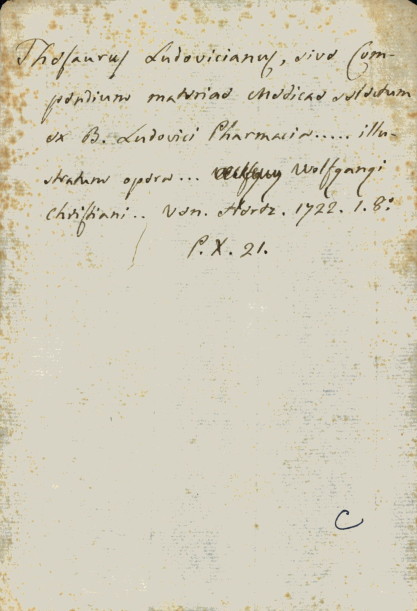 Thesaurus Ludovicianus, sive Com-
pendium materiae Medicae selectum
ex B. Ludovici Pharmacia..... illu-
stratum opera... Wolfgangi
Christiani.. Ven. Hertz. 1722. 1. 8.º
P. X. 21.
C